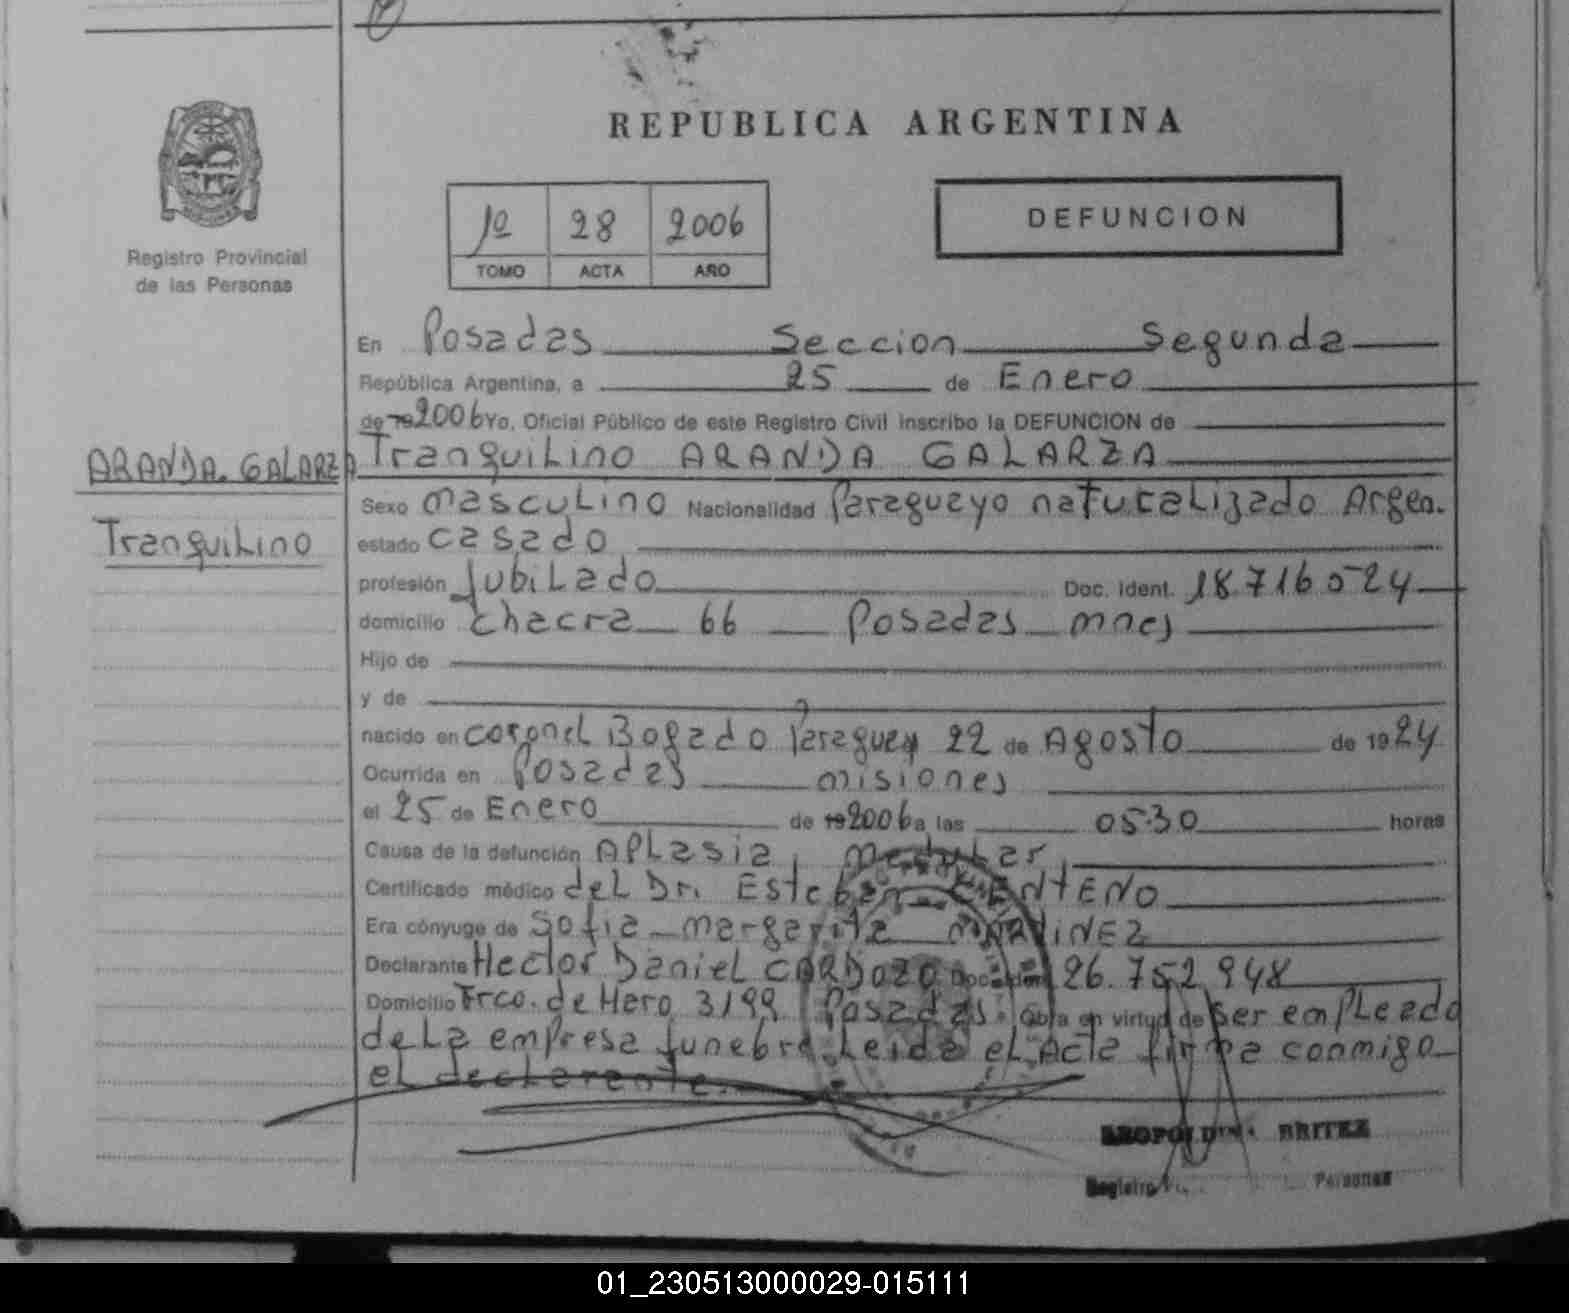 REPUBLICA ARGENTINA
Registro Provincial
de las Personas
1º 28 2006
TOMO ACTA AÑO
DEFUNCION
En Posadas Seccion Segunda
República Argentina, a 25 de Enero
de 19 2006 Yo, Oficial Público de este Registro Civil inscribo la DEFUNCION de
ARANDA. GALARZA
Tranquilino
Tranquilino ARANDA GALARZA
Sexo masculino Nacionalidad Paraguayo naturalizado Argen.
estado casado
profesión Jubilado Doc. Ident. 18.716.024
domicilio chacra 66 Posadas mnes
Hijo de
y de
nacido en coronel Bogado Paraguay 22 de Agosto de 1924
Ocurrida en Posadas misiones
el 25 de Enero de 19 2006 a las 05.30 horas
Causa de la defunción Aplasia medular
Certificado médico del Dr. Esteban CENTENO
Era cónyuge de Sofia margarita MARTINEZ
Declarante Hector Daniel CARDOZO Doc. Ident. 26.752.948
Domicilio Frco. de Haro 3199 Posadas Obra en virtud de ser empleado
de la empresa funebre. Leida el Acta firma conmigo
el declarante.
LEOPOLDINA BRITEZ
Registro Personas
01_230513000029-015111